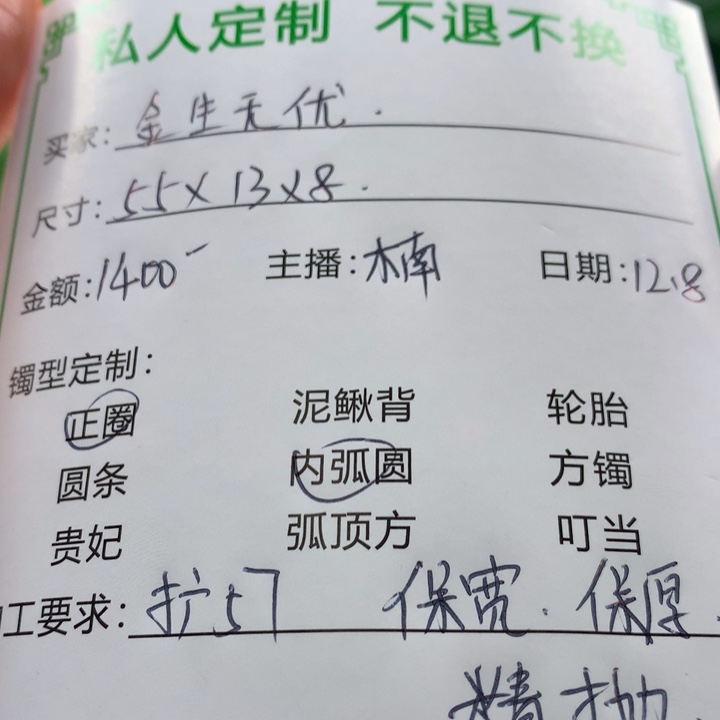 私人定制 不退不换
买家: 金生无优.
尺寸: 55×13×8.
金额: 1400- 主播: 楠 日期: 12.8
镯型定制:
正圈 泥鳅背 轮胎
圆条 内弧圆 方镯
贵妃 弧顶方 叮当
工要求: 扩57 保宽. 保厚.
精抛.